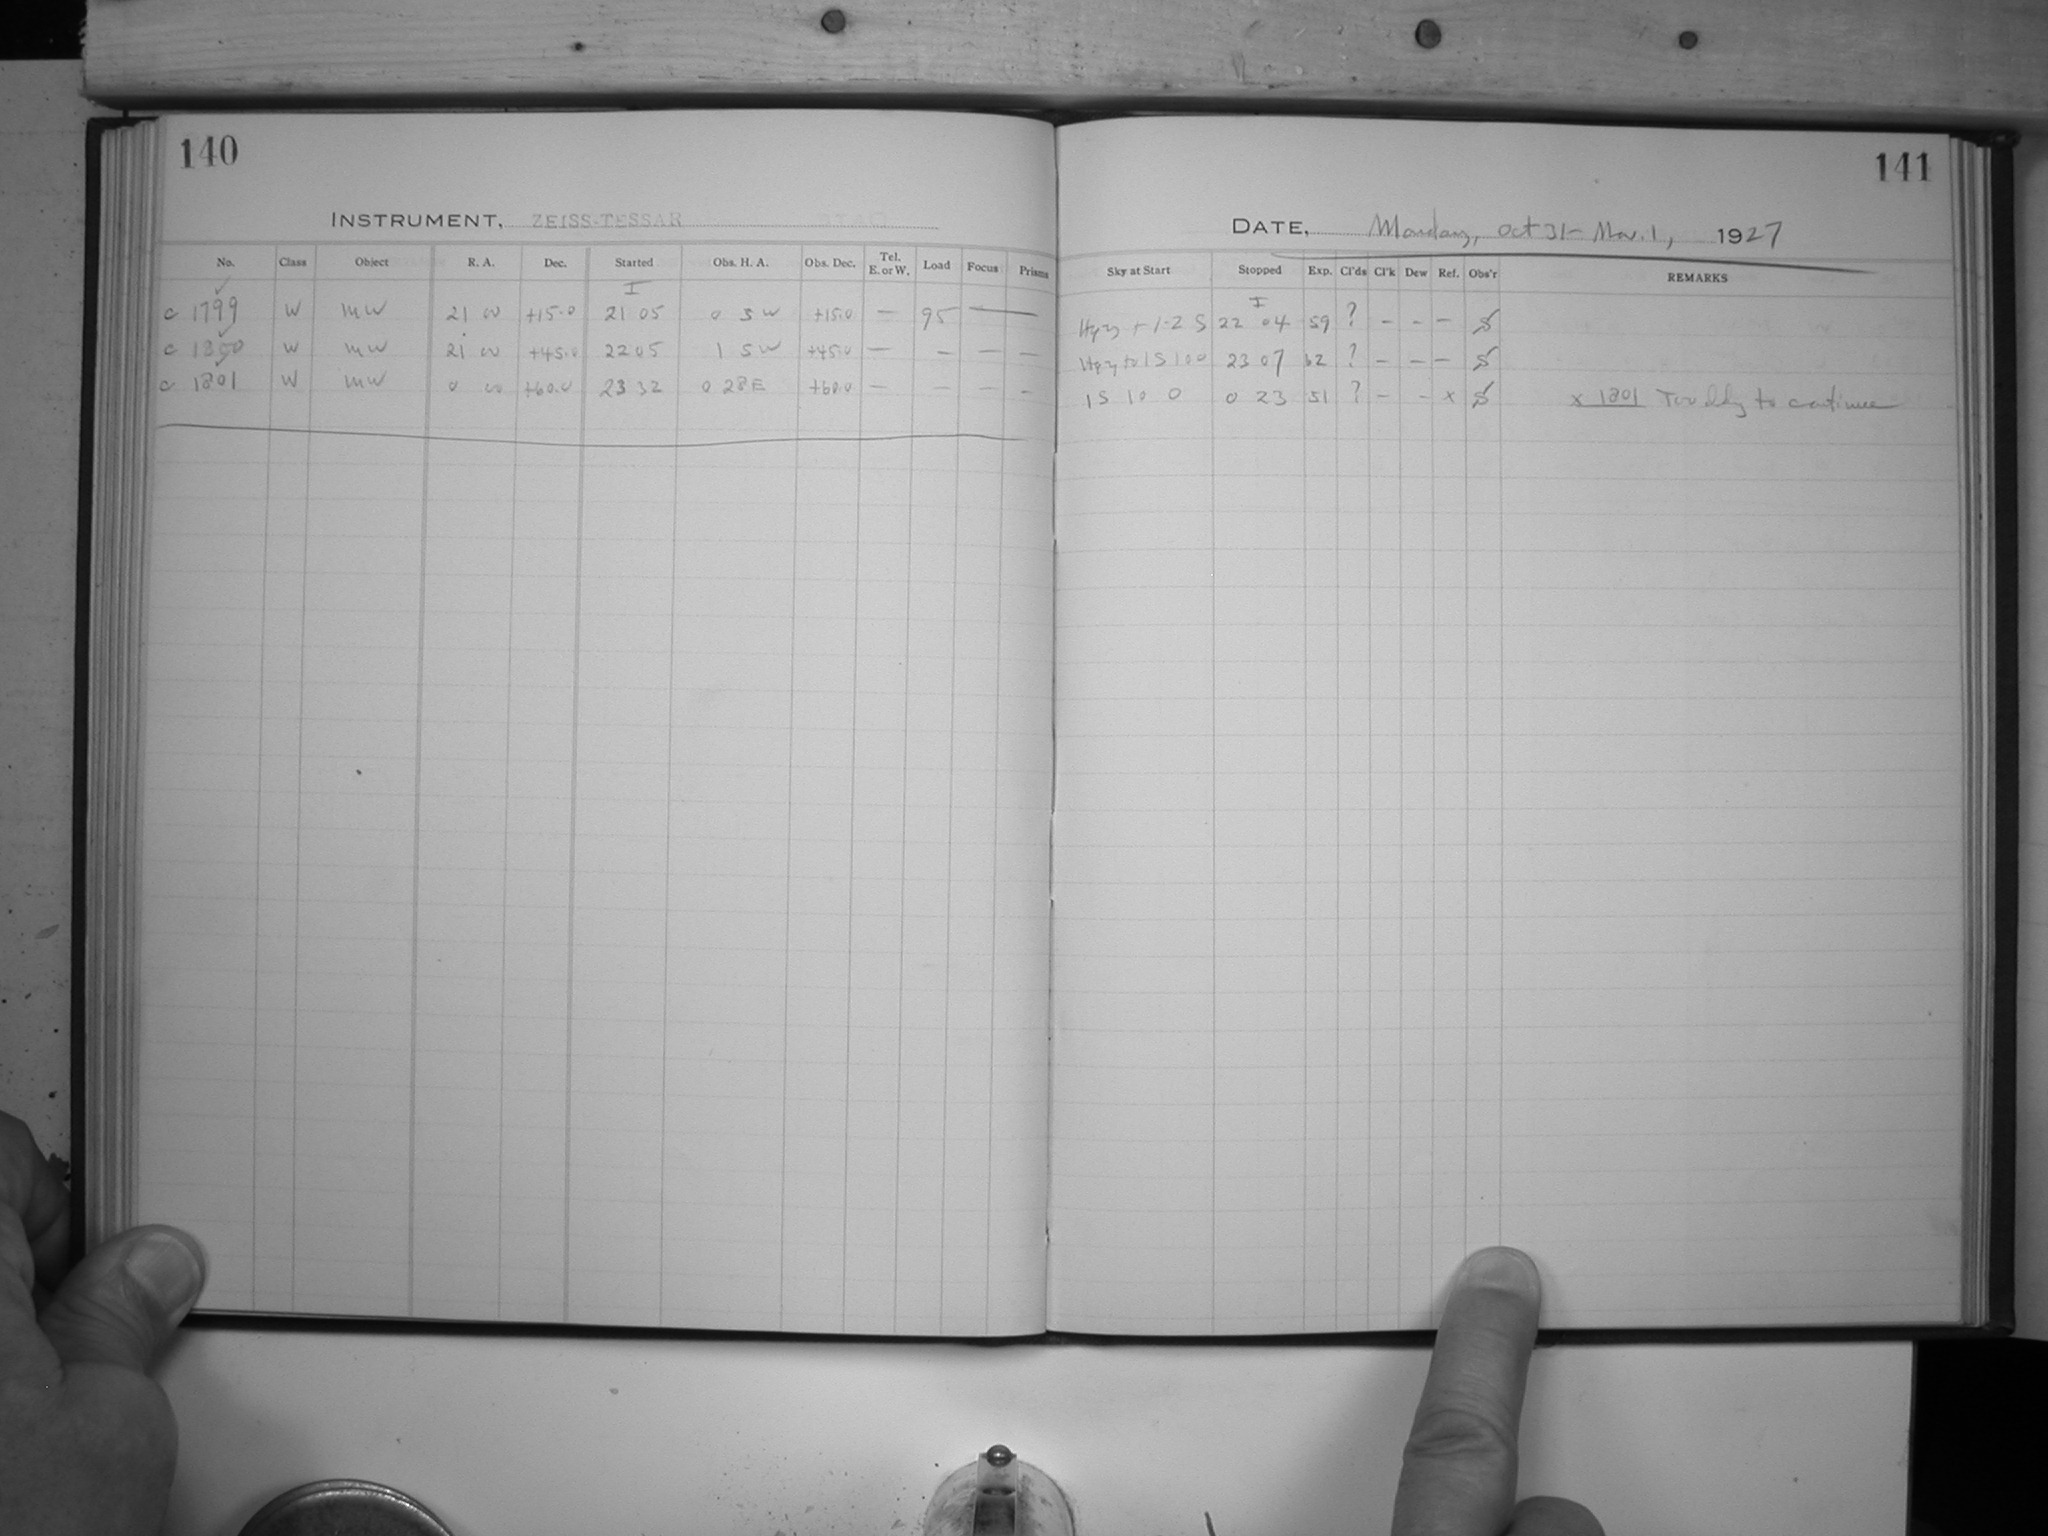 140
INSTRUMENT, ZEISS-TESSAR
No. Class Object R. A. Dec. Started Obs. H. A. Obs. Dec. Tel. E. or W. Load Focus Prisms
I
c 1799 W MW 21 00 +15.0 21 05 0 5 W +15.0 — 95 — —
c 1800 W MW 21 00 +45.0 22 05 1 5 W +45.0 — — — —
c 1801 W MW 0 00 +60.0 23 32 0 28 E +60.0 — — — –
141
DATE, Monday, Oct 31 - Nov. 1, 1927
Sky at Start Stopped Exp. Cl'ds Cl'k Dew Ref. Obs'r REMARKS
I
Hazy + 1-2 S 22 04 59 ? – – –
Hazy to 1 S 10 0 23 07 62 ? – – –
1 S 10 0 0 23 51 ? – – x x 1801 Too cldy to continue